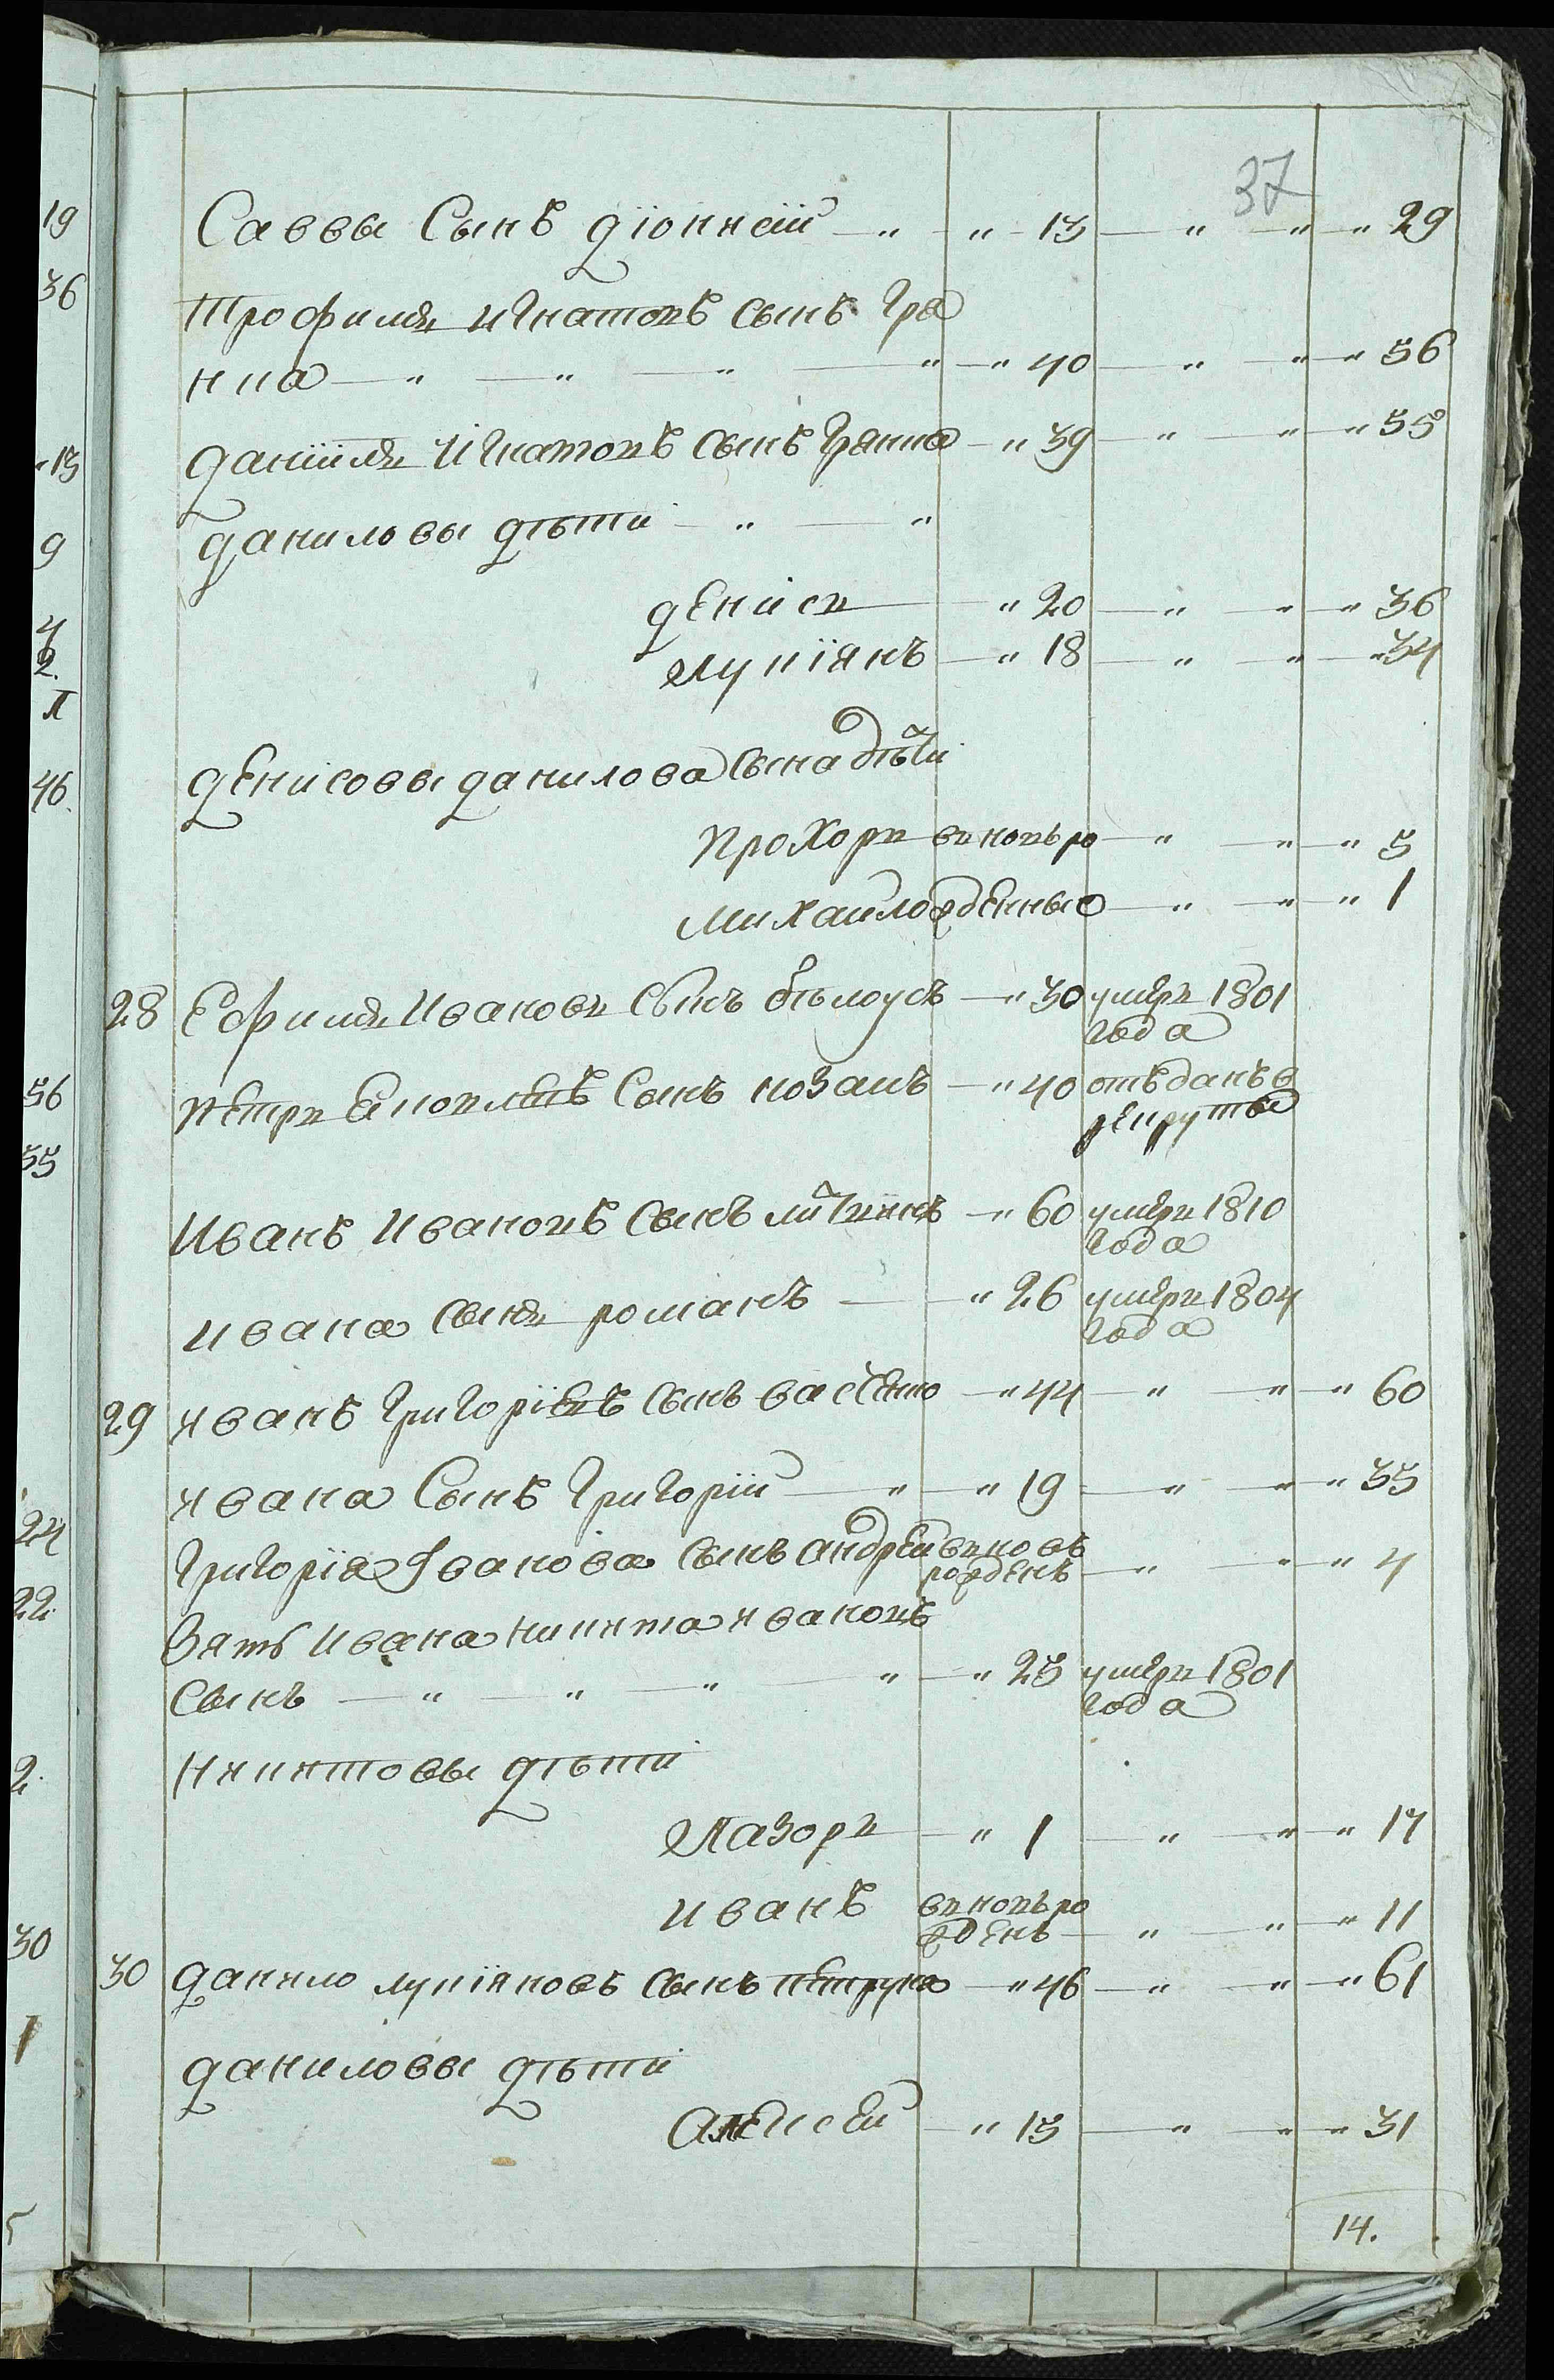 37
Саввы Сынъ діонисій — " — " 13 — " — " — " 29
Трофимъ Игнатовъ сынъ Гря
нка — " — " — " — " — " 40 — " — " — " 56
даніилъ Игнатовъ сынъ Грянка — " 39 — " — " — " 55
даниловы дѣти — " — "
денисъ — " 20 — " — " — " 36
Лукіянъ — " 18 — " — " — " 34
денисовы данилова сына дѣти
Прохоръ вновь ро — " — " — " 5
Михайло жденные — " — " — " 1
28 Ефимъ Ивановъ Сынъ бѣлоусъ — " 30 умеръ 1801
года
Петръ Сынъ козакъ — " 40 отъданъ в
рекруты
Иванъ Ивановъ Сынъ — " 60 умеръ 1810
года
Ивана сынъ романъ — " 26 умеръ 1804
года
29 Иванъ Григоріевъ Сынъ — " 44 — " — " — " 60
Ивана Сынъ Григорій — " — " 19 — " — " — " 35
Григорія Іванова Сынъ андрей вновь
рожденъ — " — " — " 4
Зять Ивана никита Ивановъ
Сынъ — " — " — " — " — " 25 умеръ 1801
года
Никитовы дѣти
Лазоръ — " 1 — " — " — " 17
Иванъ вновь ро
жденъ — " — " — " 11
30 данило лукіяновъ Сынъ — " 46 — " — " — " 61
даниловы дѣти
Алексей — " 15 — " — " — " 31
14.
19
36
" 13
9
4
2.
1
46.
56
55
24
22.
2.
30
1